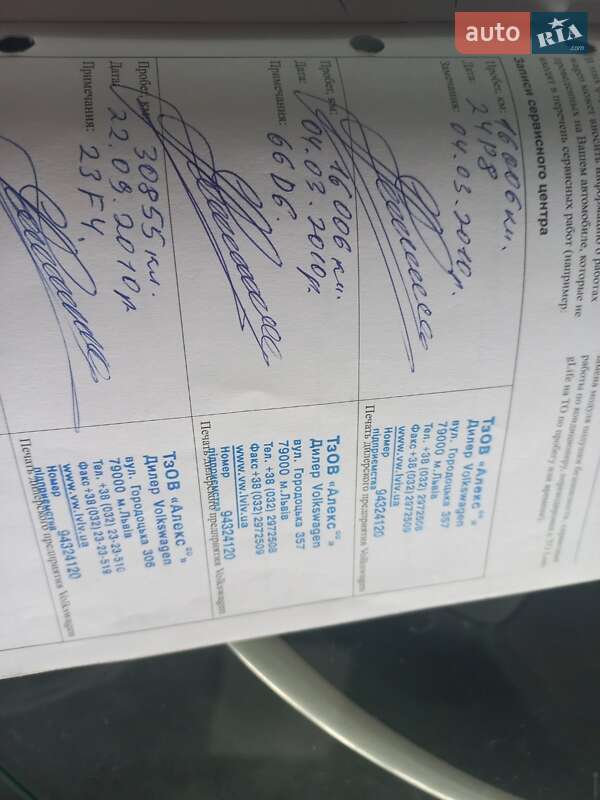 auto RIA .com
проведенных на Вашем автомобиле, которые не
входят в перечень сервисных работ (например:
работы по кондиционеру,
gLife на ТО по пробегу или времени).
Записи сервисного центра
Пробег, км: 16006км.
Дата: 24P8
Замечания: 04.03.2010г.
ТзОВ «Алекс со»
Дилер Volkswagen
вул. Городоцька 357
79000 м.Львів
Тел. +38 (032) 2972508
Факс+38 (032) 2972509
www.vw.lviv.ua
Номер
підприємства 94324120
Печать дилерского предприятия Volkswagen
Пробег, км: 16006км.
Дата: 04.03.2010г
Примечания: 66D6.
ТзОВ «Алекс со»
Дилер Volkswagen
вул. Городоцька 357
79000 м.Львів
Тел. +38 (032) 2972508
Факс+38 (032) 2972509
www.vw.lviv.ua
Номер
підприємства 94324120
Печать дилерского предприятия Volkswagen
Пробег, км: 30855км.
Дата: 22.09.2010г
Примечания: 23F4.
ТзОВ «Алекс со»
Дилер Volkswagen
вул. Городоцька 306
79000 м.Львів
Тел. +38 (032) 23-23-510
Факс+38 (032) 23-23-519
www.vw.lviv.ua
Номер
підприємства 94324120
Печать дилерского предприятия Volkswagen